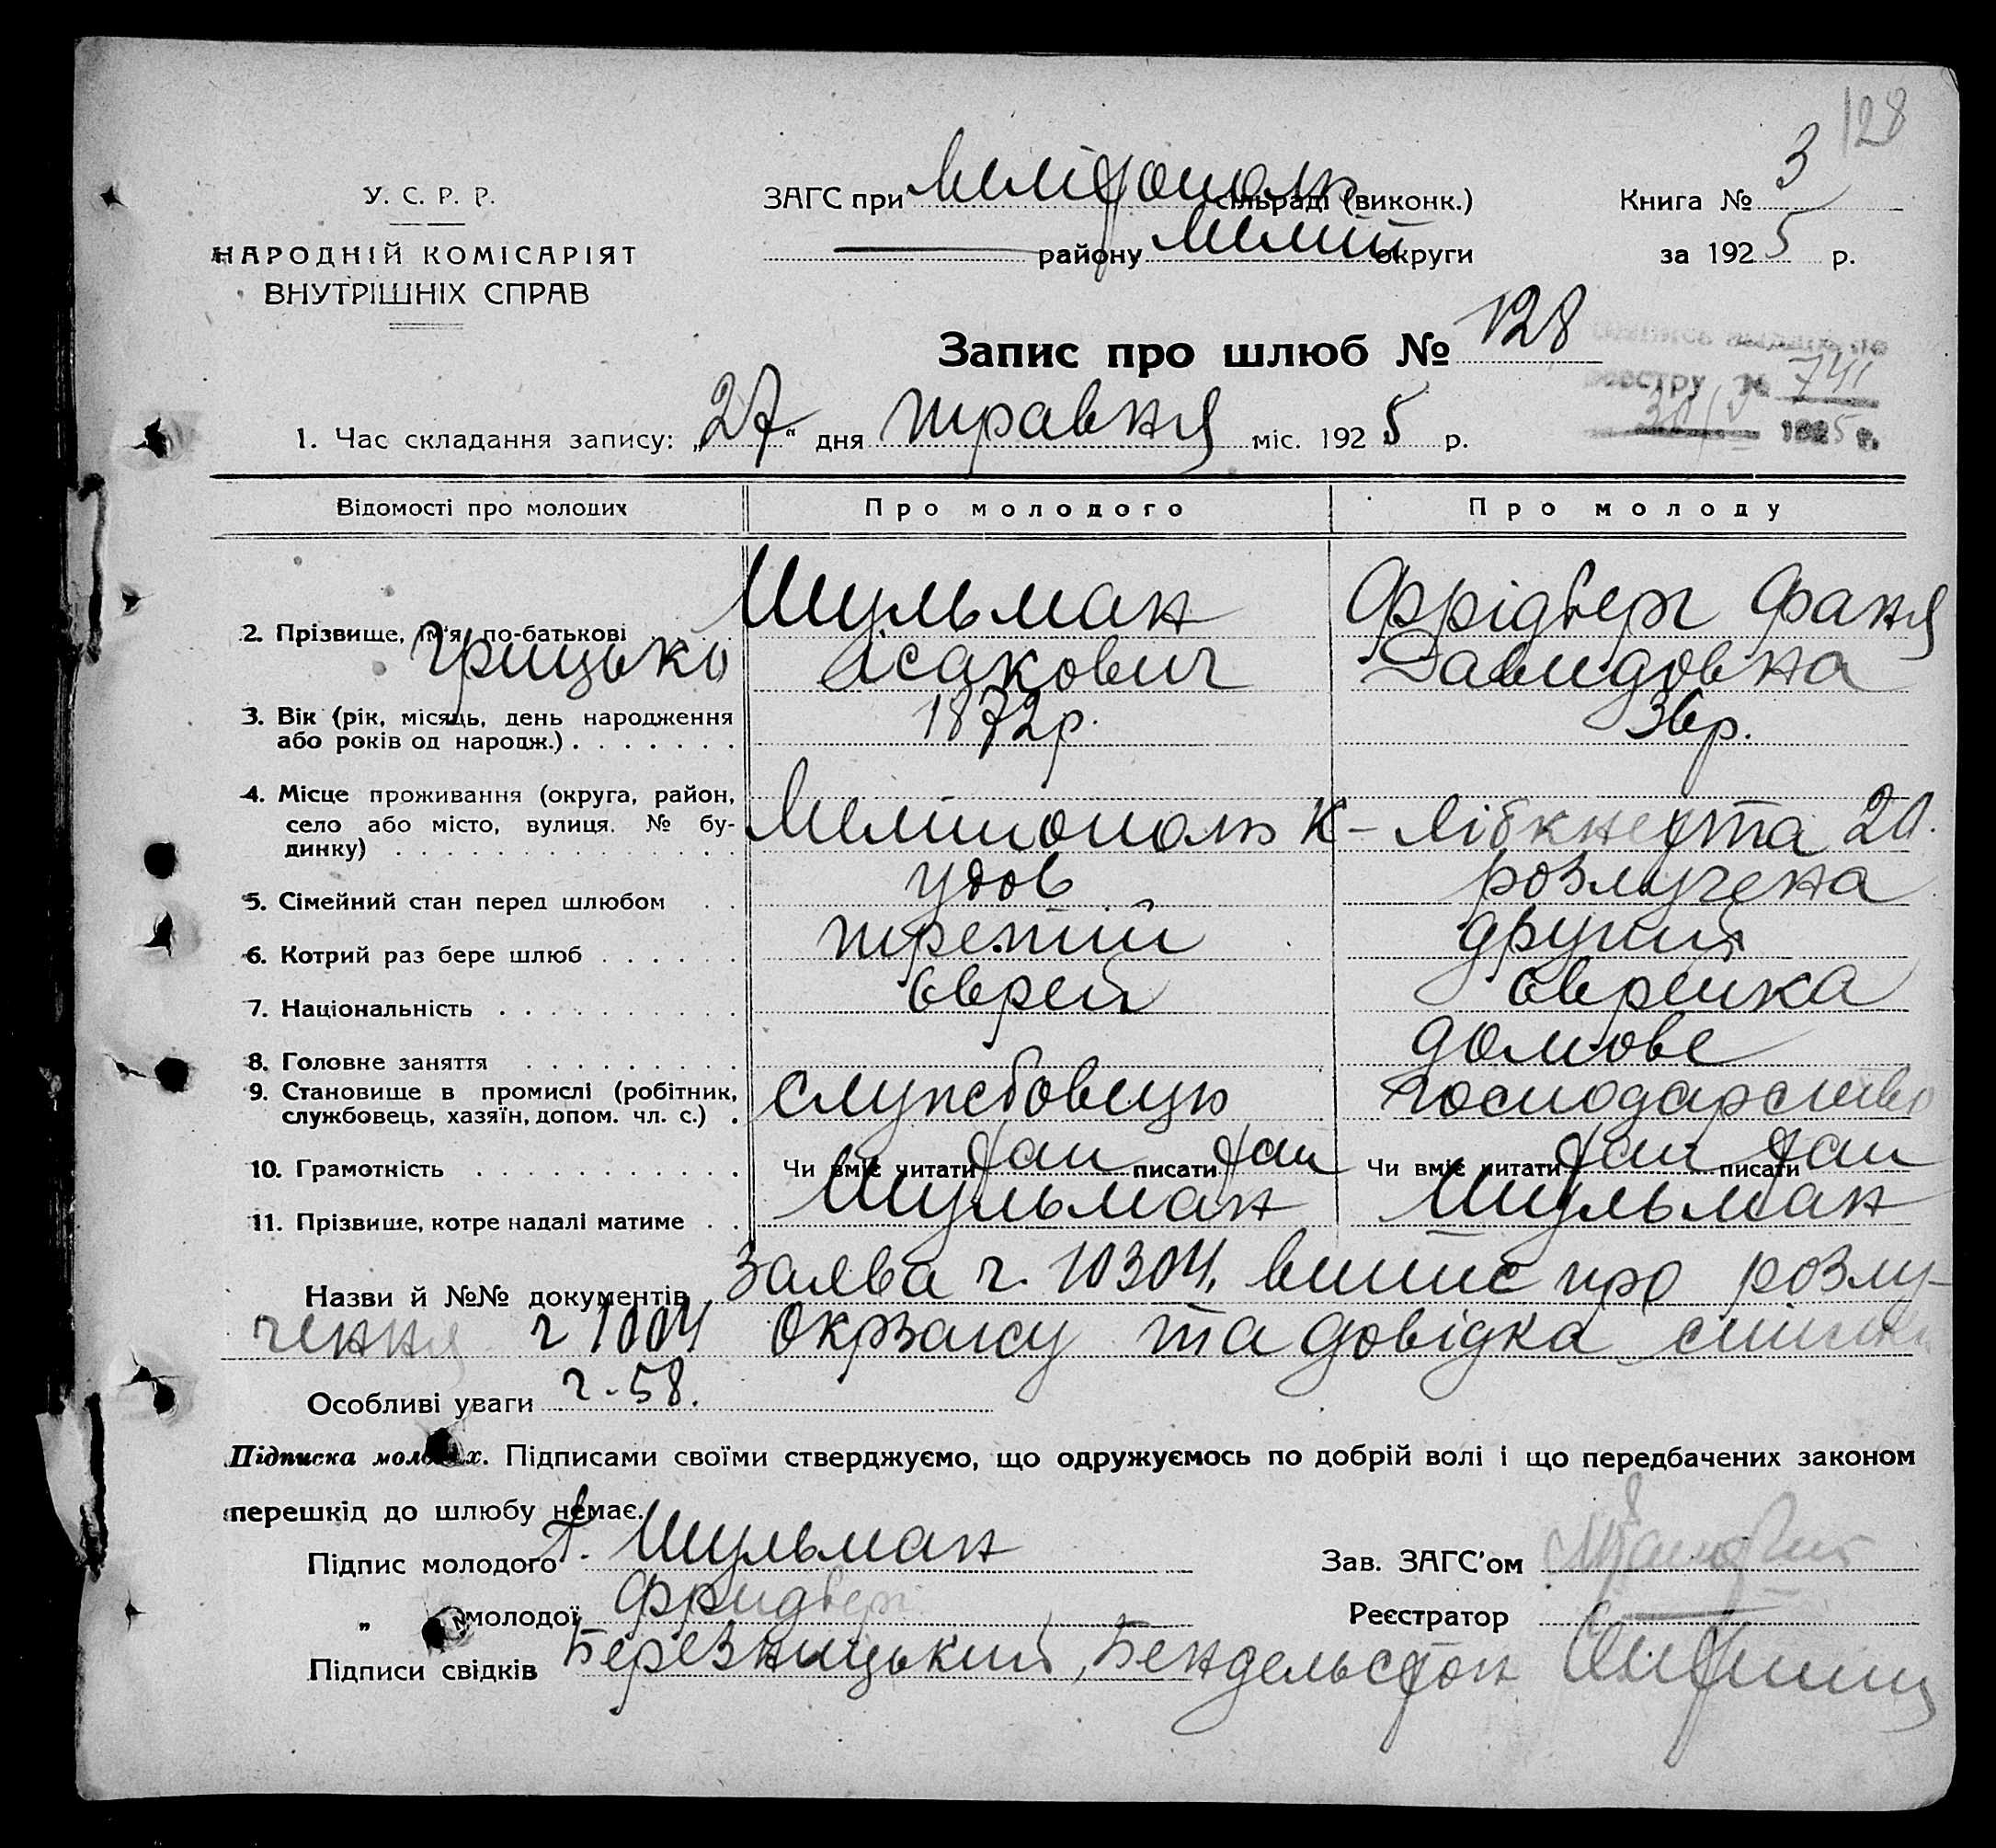 128
У. С. Р. Р.
НАРОДНІЙ КОМІСАРІЯТ
ВНУТРІШНІХ СПРАВ
ЗАГС при Мелітополь сільраді (виконк.)
району Меліт округи
Книга № 3
за 1925 р.
Запис про шлюб № 128
реєстру № 741
1925 г.
1. Час складання запису: „27“ дня травня міс. 1925 р.
Відомості про молодих Про молодого Про молоду
2. Прізвище, ім'я, по-батькові Шульман Фрідберг Фаня
Грицько Ісакович Давидовна
3. Вік (рік, місяць, день народження 1872р. 36р.
або років од народж.)
4. Місце проживання (округа, район,
село або місто, вулиця. № бу- Мелітополь К- Лібкнехта 20.
динку)
5. Сімейний стан перед шлюбом удов розлучена
6. Котрий раз бере шлюб третій другий
7. Національність Єврей Єврейка
8. Головне заняття домове
9. Становище в промислі (робітник, службовець господарство
службовець, хазяїн, допом. чл. с.)
10. Грамотність Чи вміє читати так писати так Чи вміє читати так писати так
11. Прізвище, котре надалі матиме Шульман Шульман
Назви й №№ документів Заява ч. 10304, випис про розлу-
чення ч 1004 Окрзагсу та довідка
Особливі уваги ч-58.
Підписка молодих. Підписами своїми стверджуємо, що одружуємось по добрій волі і що передбачених законом
перешкід до шлюбу немає.
Підпис молодого Г. Шульман
Зав. ЗАГС'ом
„ молодої Фридберг
Реєстратор
Підписи свідків Березницький, Бендельстон